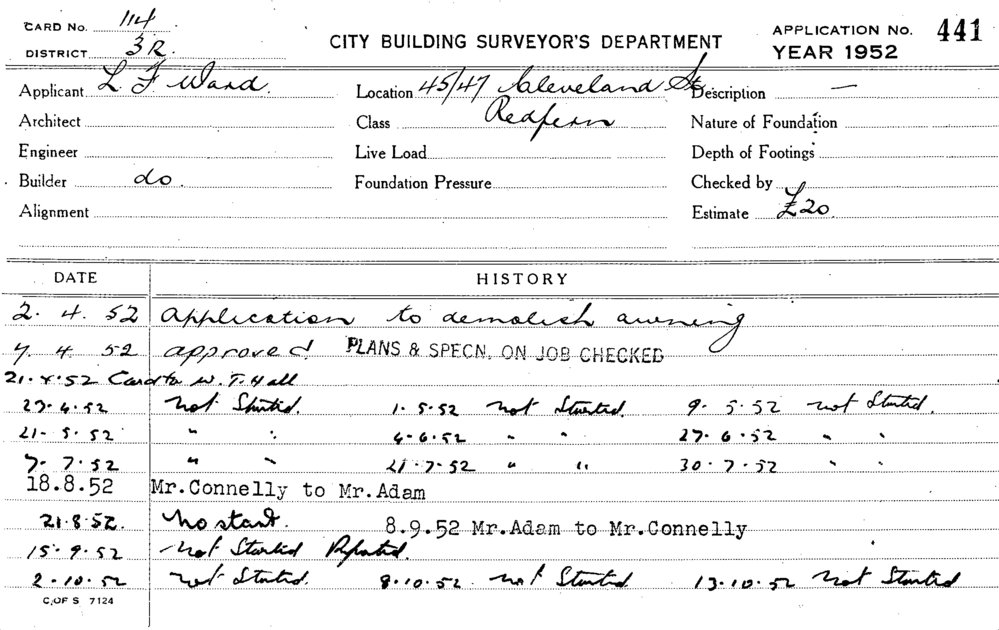 CARD No. 114
DISTRICT 3R.
CITY BUILDING SURVEYOR'S DEPARTMENT
APPLICATION No. 441
YEAR 1952
Applicant L F Ward. Location 45/47 Cleveland St. Description —
Architect Class Redfern Nature of Foundation
Engineer Live Load Depth of Footings
Builder do. Foundation Pressure Checked by
Alignment Estimate £20
DATE HISTORY
2. 4. 52 Application to demolish awning
7. 4. 52 approved PLANS & SPECN. ON JOB CHECKED
21.4.52 Card to W. T. Hall
Not Started. 1.5.52 Not Started. 9.5.52 Not Started.
21.5.52 " " 4.6.52 " " 27.6.52 " "
7.7.52 " " 21.7.52 " " 30.7.52 " "
18.8.52 Mr.Connelly to Mr.Adam
21.8.52. No start. 8.9.52 Mr.Adam to Mr.Connelly
15.9.52 Not Started Reported.
2.10.52 Not Started. 8.10.52. Not Started 13.10.52 Not Started
C. OF S 7124